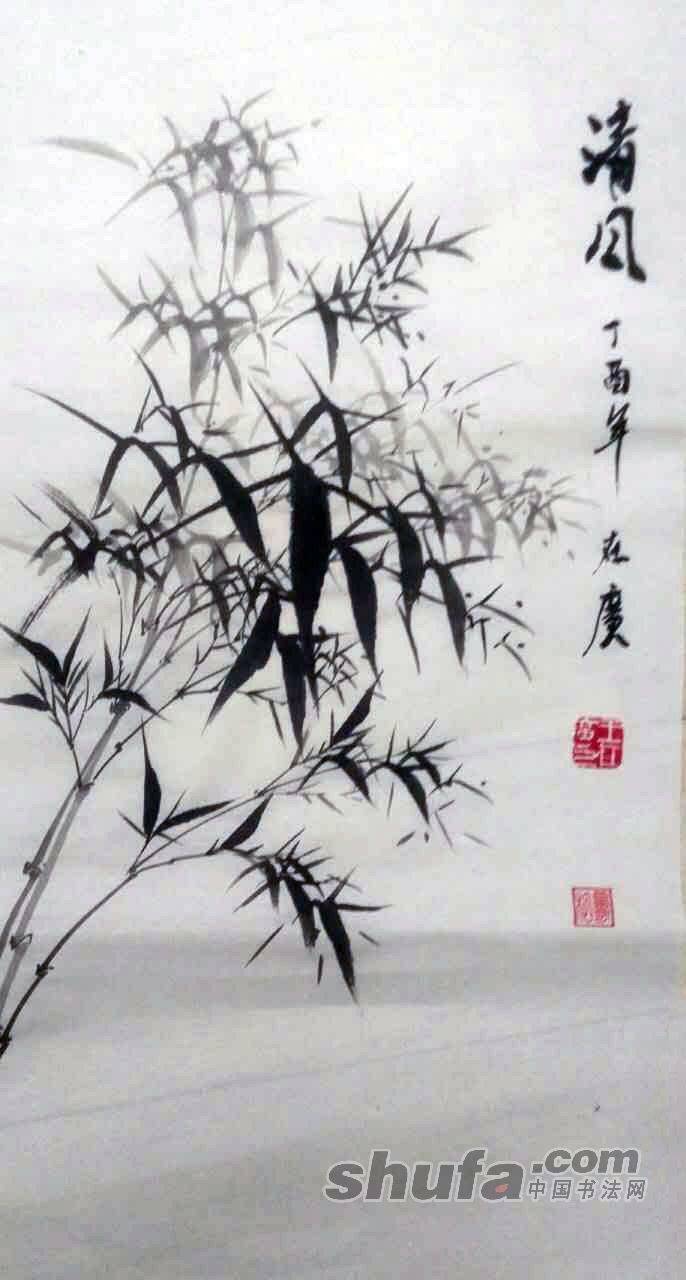 清风
丁酉年
在廣
shufa.com
中国书法网